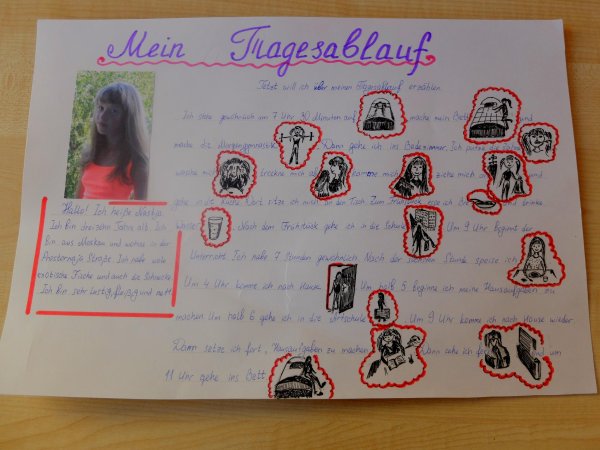 Mein Tragesablauf
Jetzt will ich über meinen Tagesablauf erzählen.
Ich stehe gewöhnlich um 7 Uhr 30 Minuten auf mache mein Bett und
mache die Morgengymnastik Dann gehe ich ins Badezimmer. Ich putze die Zähne
wasche mich trockne mich ab kämme mich ziehe mich an und
gehe in die Küche. Dort sitze ich mich an den Tisch. Zum Frühstück esse ich und trinke
Wasser Nach dem Frühstück gehe ich in die Schule Um 9 Uhr beginnt der
Unterricht. Ich habe 7 Stunden gewöhnlich. Nach der Stunde speise ich
Um 4 Uhr komme ich nach Hause Um halb 5 beginne ich meine Hausaufgaben zu
machen. Um halb 6 gehe ich in die Um 9 Uhr komme ich nach Hause wieder.
Dann setze ich fort, Hausaufgaben zu machen Dann gehe ich und um
11 Uhr gehe ins Bett
Hallo! Ich heiße Nastja.
Ich bin dreizehn Jahre alt. Ich
bin aus Moskau und wohne in der
Straße. Ich habe viele
exotische Fische und auch die Schnecke.
Ich bin sehr lustig, fleißig und nett